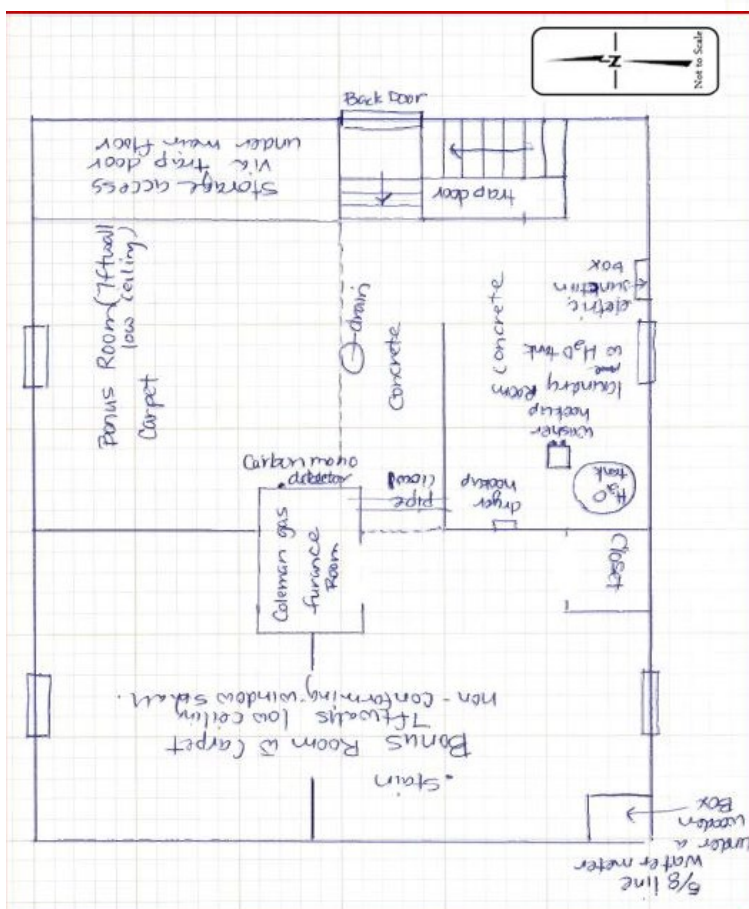 N
Not to Scale
Back Door
Storage access
via trap door
under main floor
trap door
Bonus Room (7ft wall
low ceiling)
Carpet
drain
Concrete
Concrete
eletric
junction
box
Laundry Room
w H2O tank
washer
hookup
dryer
hookup
H2O
tank
pipe
(low)
Carbon
detector
Coleman gas
furance
Room
Closet
Bonus Room w Carpet
7ft walls low ceiling
non-conforming window small.
Stain
5/8 line
water meter
under a
wooden
Box